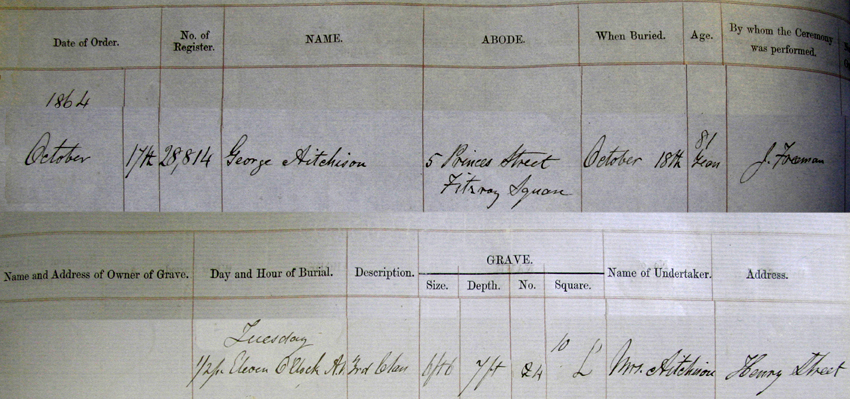 Date of Order.
No. of Register.
NAME.
ABODE.
When Buried.
Age.
By whom the Ceremony was performed.
1864
October 17th 28,814 George Aitchison 5 Princes Street October 18th 81 Years J. Freeman
Fitzroy Square
Name and Address of Owner of Grave.
Day and Hour of Burial.
Description.
GRAVE.
Size.
Depth.
No.
Square.
Name of Undertaker.
Address.
Tuesday
1/2 p Eleven O'Clock 3rd Class 6ft6 7ft 24 10 L Mrs. Aitchison Henry Street